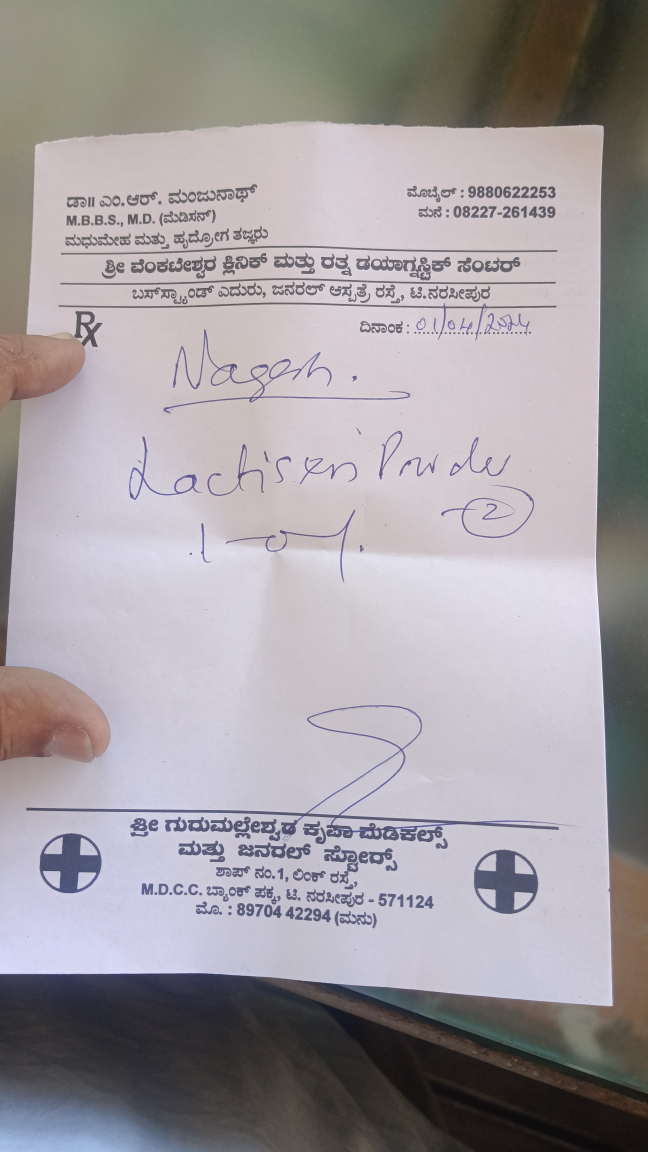 ಡಾ॥ ಎಂ.ಆರ್. ಮಂಜುನಾಥ್
M.B.B.S., M.D. (ಮೆಡಿಸನ್)
ಮಧುಮೇಹ ಮತ್ತು ಹೃದ್ರೋಗ ತಜ್ಞರು
ಮೊಬೈಲ್ : 9880622253
ಮನೆ : 08227-261439
ಶ್ರೀ ವೆಂಕಟೇಶ್ವರ ಕ್ಲಿನಿಕ್ ಮತ್ತು ರತ್ನ ಡಯಾಗ್ನಸ್ಟಿಕ್ ಸೆಂಟರ್
ಬಸ್‌ಸ್ಟ್ಯಾಂಡ್ ಎದುರು, ಜನರಲ್ ಆಸ್ಪತ್ರೆ ರಸ್ತೆ, ಟಿ.ನರಸೀಪುರ
Rx
ದಿನಾಂಕ : 01/04/2024
Nagesh.
Powder
2
1-0-1.
ಶ್ರೀ ಗುರುಮಲ್ಲೇಶ್ವರ ಕೃಪಾ ಮೆಡಿಕಲ್ಸ್
ಮತ್ತು ಜನರಲ್ ಸ್ಟೋರ್ಸ್
ಶಾಪ್ ನಂ.1, ಲಿಂಕ್ ರಸ್ತೆ,
M.D.C.C. ಬ್ಯಾಂಕ್ ಪಕ್ಕ, ಟಿ. ನರಸೀಪುರ - 571124
ಮೊ. : 89704 42294 (ಮನು)